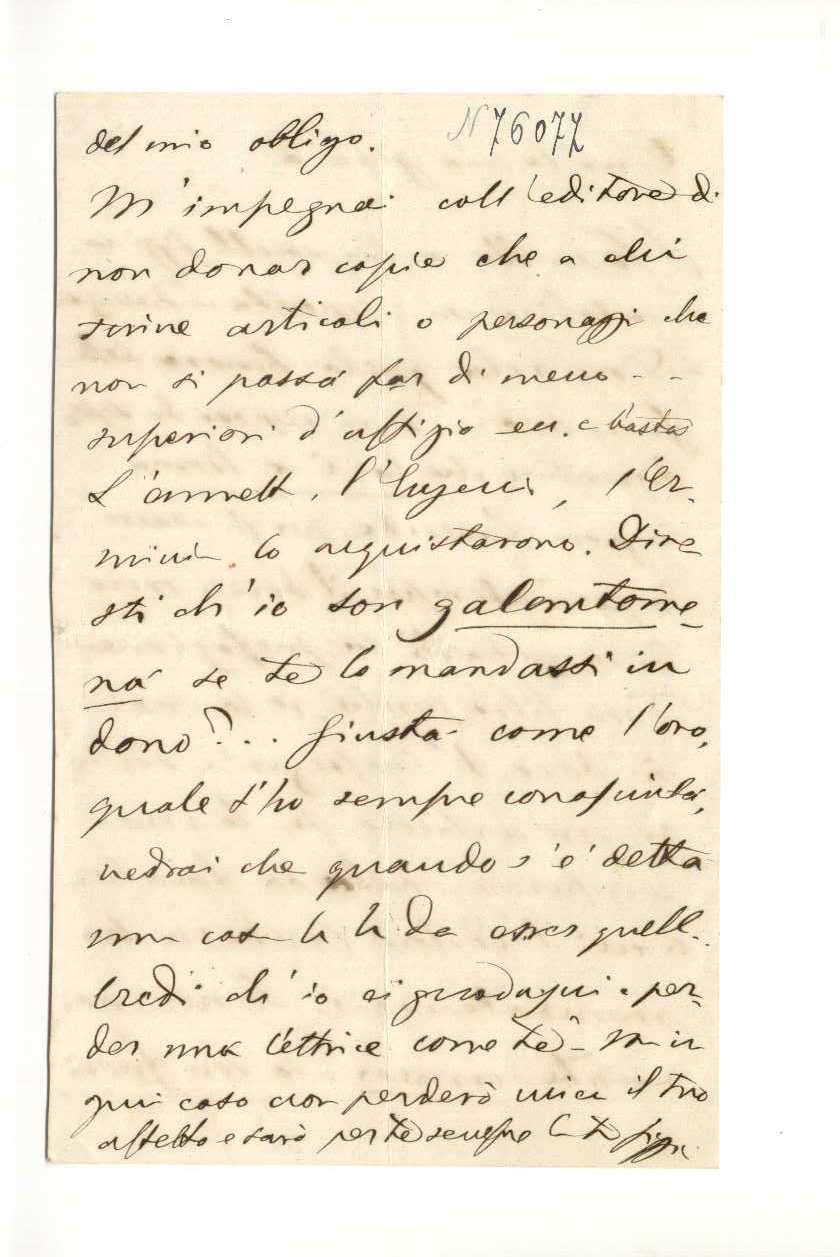 N 76077
del mio obligo.
M'impegnai coll'editore di
non donar copie che a chi
scrive articoli o personaggi che
non si possa far di meno - -
superiori d'uffizio ecc. e basta
L'annetta, l'Eugenia, l'Er-
minia lo acquistarono. Dire-
sti ch'io son galantome-
na se te lo mandassi in
dono?... Giusta come l'oro,
quale t'ho sempre conosciuta,
vedrai che quando s'è detta
una cosa la ha da esser quella.
Credi ch'io ci guadagni a per-
der una lettrice come te - ma in
ogni caso non perderò mica il tuo
affetto e sarò per te sempre la tua